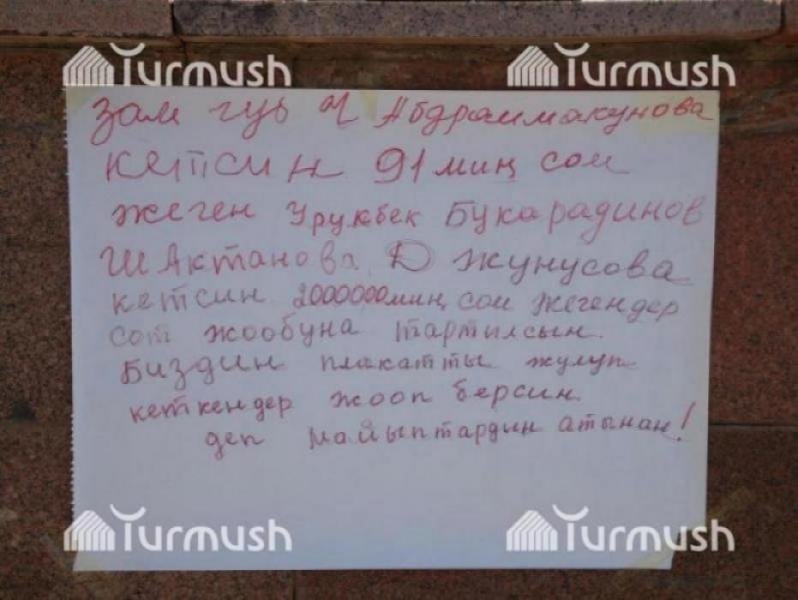 Turmush Turmush
зам губ Ч Абдраимакунова
кетсин 91 миң сом
жеген Урукбек Букарадинов
Ш Актанова, Д Жунусова
кетсин 2000000 миң сом жегендер
сот жообуна тартилсын.
Биздин плакатты жулуп
кеткендер жооп берсин
деп майыптардын атынан!
Turmush Turmush